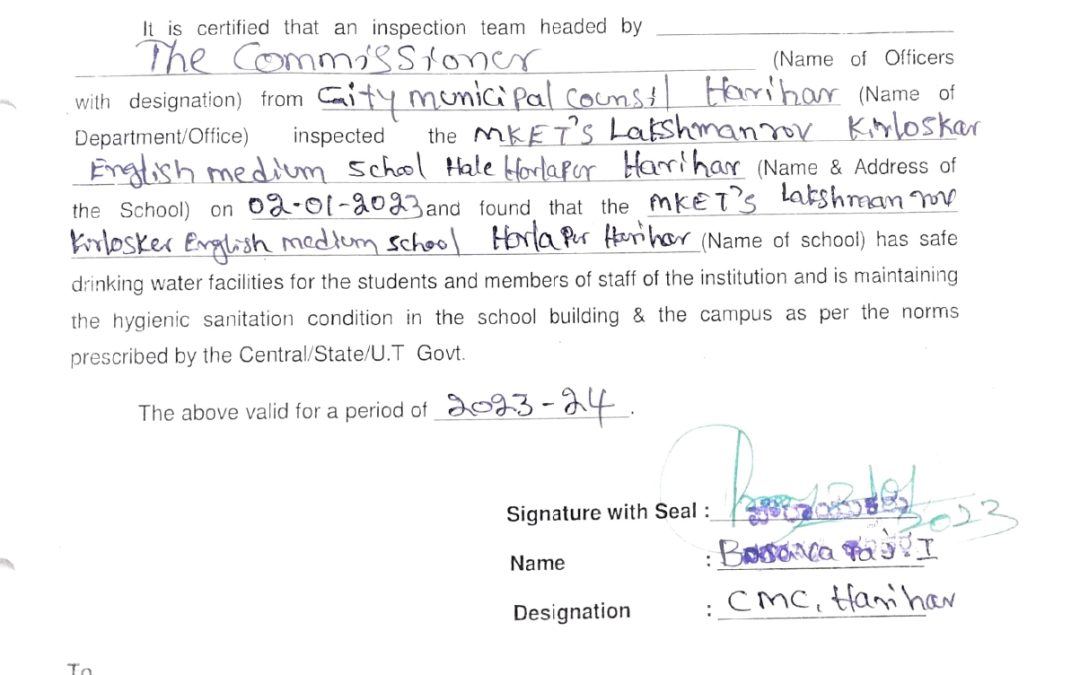 It is certified that an inspection team headed by
The Commissioner (Name of Officers
with designation) from City municipal counsil Harihar (Name of
Department/Office) inspected the MKET's Lakshmanrov Kirloskar
English medium school Hale Harlapur Harihar (Name & Address of
the School) on 02-01-2023 and found that the MKET's Lakshman rov
Kirlosker English medium school Harlapur Harihar (Name of school) has safe
drinking water facilities for the students and members of staff of the institution and is maintaining
the hygienic sanitation condition in the school building & the campus as per the norms
prescribed by the Central/State/U.T Govt.
The above valid for a period of 2023-24.
Signature with Seal : 2023
Name : I
Designation : CMC, Harihar
To